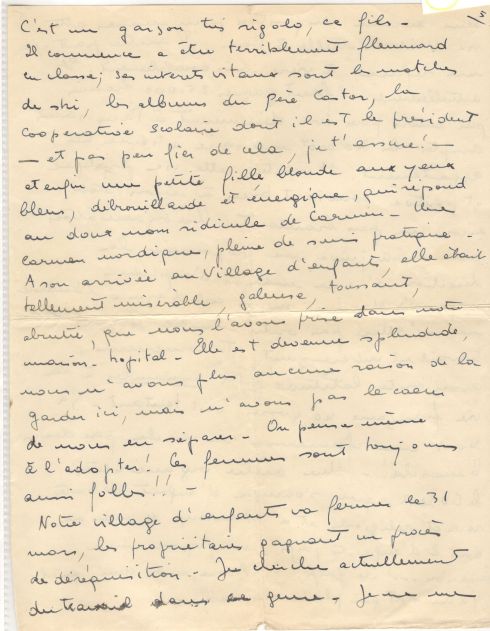 5
C'est un garçon très rigolo, ce fils -
Il commence a être terriblement flemmard
en classe; ses interets vitaux sont les matches
de ski, les albums du Père Castor, la
Cooperative Scolaire dont il est le président
- et pas peu fier de cela, je t'assure! -
et enfin une petite fille blonde aux yeux
bleus, débrouillarde et énergique, qui répond
au doux nom ridicule de Carmen - Une
Carmen nordique, pleine de sens pratique -
A son arrivée au Village d'enfants, elle était
tellement misérable, galeuse, toussant,
abrutie, que nous l'avons prise dans notre
maison-hopital - Elle est devenue splendide,
nous n'avons plus aucune raison de la
garder ici, mais n'avons pas le coeur
de nous en séparer - On pense même
à l'adopter! Les femmes sont toujours
aussi folles!!! -
Notre village d'enfants va fermer le 31
mars, les propriétaires gagnant un procès
de déréquisition - Je cherche actuellement
du travail dans ce genre - Je me